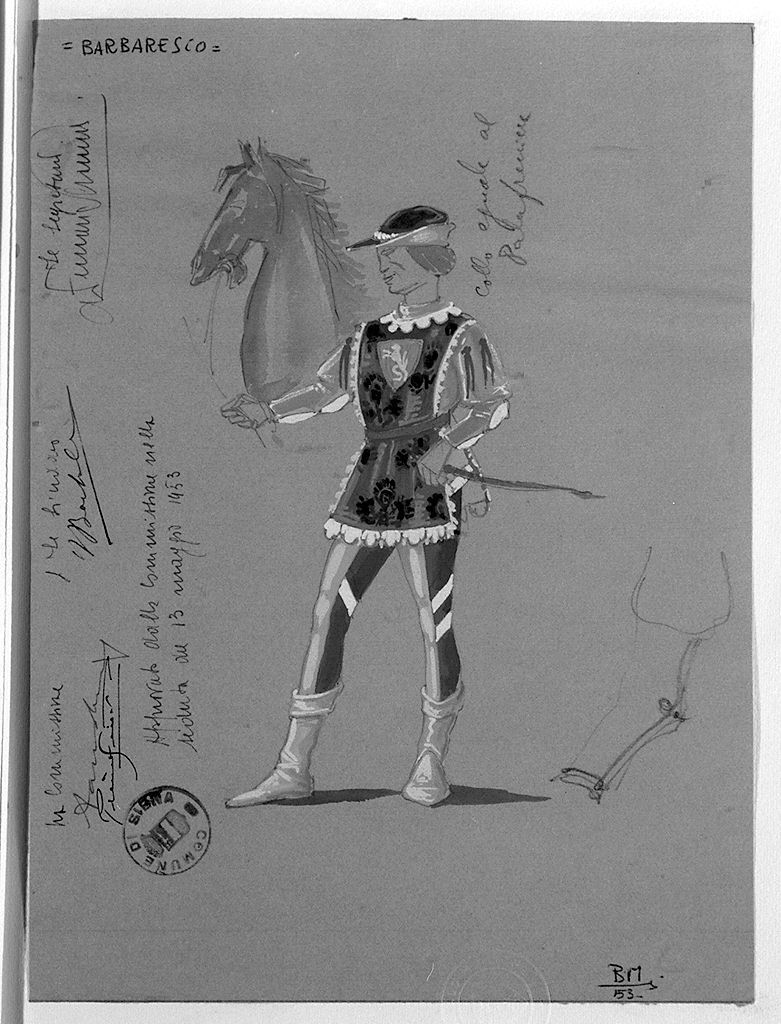 = BARBARESCO =
Collo eguale al
Palafreniere
Il Segretario
Il Sindaco
Approvato dalla Commissione nella
seduta del 13 maggio 1953
La Commissione
COMUNE DI SIENA
BM.
53-